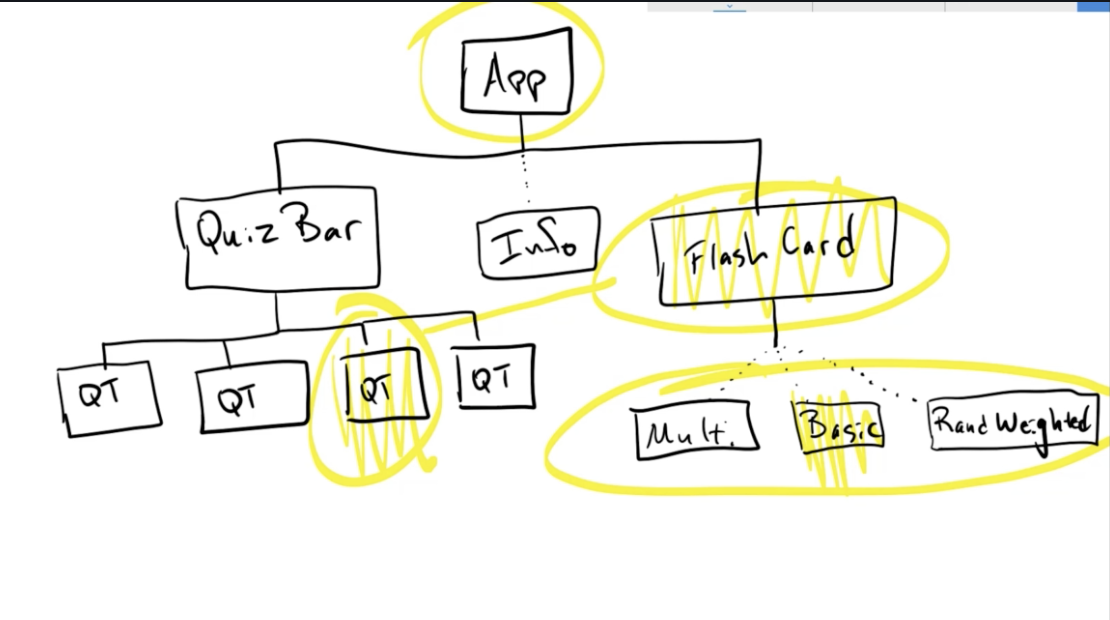 App
Quiz Bar
Info
Flash Card
QT
QT
QT
QT
Multi.
Basic
Rand Weighted